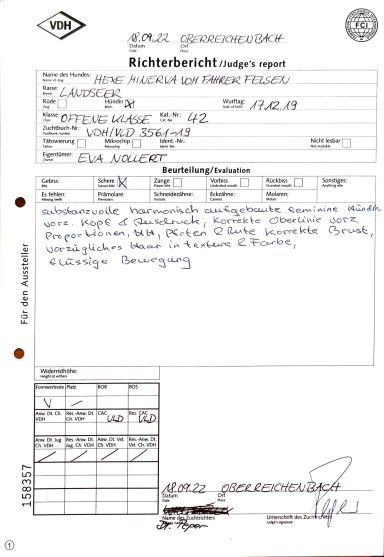 VDH
FCI
18.09.22 OBERREICHENBACH
Datum Ort
Date Place
Richterbericht/Judge's report
Name des Hundes: HEXE MINERVA VOM FAHRER FELSEN
Name of dog
Rasse: LANDSEER
Breed
Rüde Hündin X Wurftag: 17.12.19
Dog Bitch Date of birth
Klasse: OFFENE KLASSE Kat.-Nr.: 42
Class Cat. No
Zuchtbuch-Nr.: VDH/VLD 3561-19
Studbook number
Tätowierung Mikrochip Ident.-Nr.: Nicht lesbar
Tattoo Microchip Ident. No. Not readable
Eigentümer: EVA NOLLERT
Owner
Beurteilung/Evaluation
Gebiss: Schere X Zange Vorbiss Rückbiss Sonstiges:
Bite Scissor bite Pincer bite Undershot mouth Overshot mouth Anything else
Es fehlen: Prämolare: Schneidezähne: Eckzähne: Molare:
Missing teeth Premolars Incisors Canines Molars
substanzvolle harmonisch aufgebaute feminine Hündin,
vorz. Kopf & Ausdruck, korrekte Oberlinie vorz
Proportionen, Pfoten & Rute korrekte Brust,
vorzügliches Haar in textere & Farbe,
flüssige Bewegung
Für den Aussteller
Widerristhöhe:
Height at withers
Formwertnote Platz BOB BOS
V —
Anw. Dt. Ch. VDH Res.-Anw. Dt. Ch. VDH CAC VLD Res. CAC VLD
Anw. Dt. Jug. Ch. VDH Res.-Anw. Dt. Jug. Ch. VDH Anw. Dt. Vet. Ch. VDH Res.-Anw. Dt. Vet. Ch. VDH
158357
18.09.22 OBERREICHENBACH
Datum Ort
Date Place
Name des Zuchtrichters Unterschrift des Zuchtrichters
Judge's name Judge's signature
1